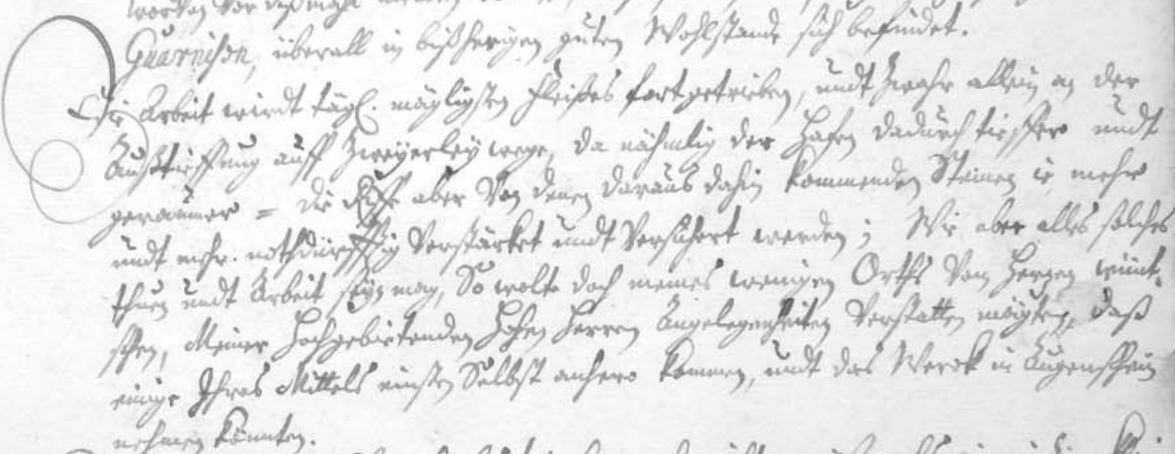 Guarnison, überall in bißherigen guten Wohlstande sich befindet.
Die Arbeit wirdt tägl. mögligsten fleißes fortgetrieben, undt zwahr allein an der
Außtieffung auff zweyerley wege, da nähmlig der Hafen dadurch tieffer undt
geraumer = die aber von denen daraus dahin kommenden Steinen ie mehr
undt mehr nothdürfftig verstärket undt versichert werden; Wie aber alles solches
thuen undt Arbeit seyn mag, So wolte doch meines wenigen Orths von Herzen wünt,
schen, Meiner Hochgebietenden Hohen Herren Angelegenheiten verstatten mögten, daß
einige Ihres Mittels einsten Selbst anhero kommen, undt das Werck in Augenschein
nehmen könnten.